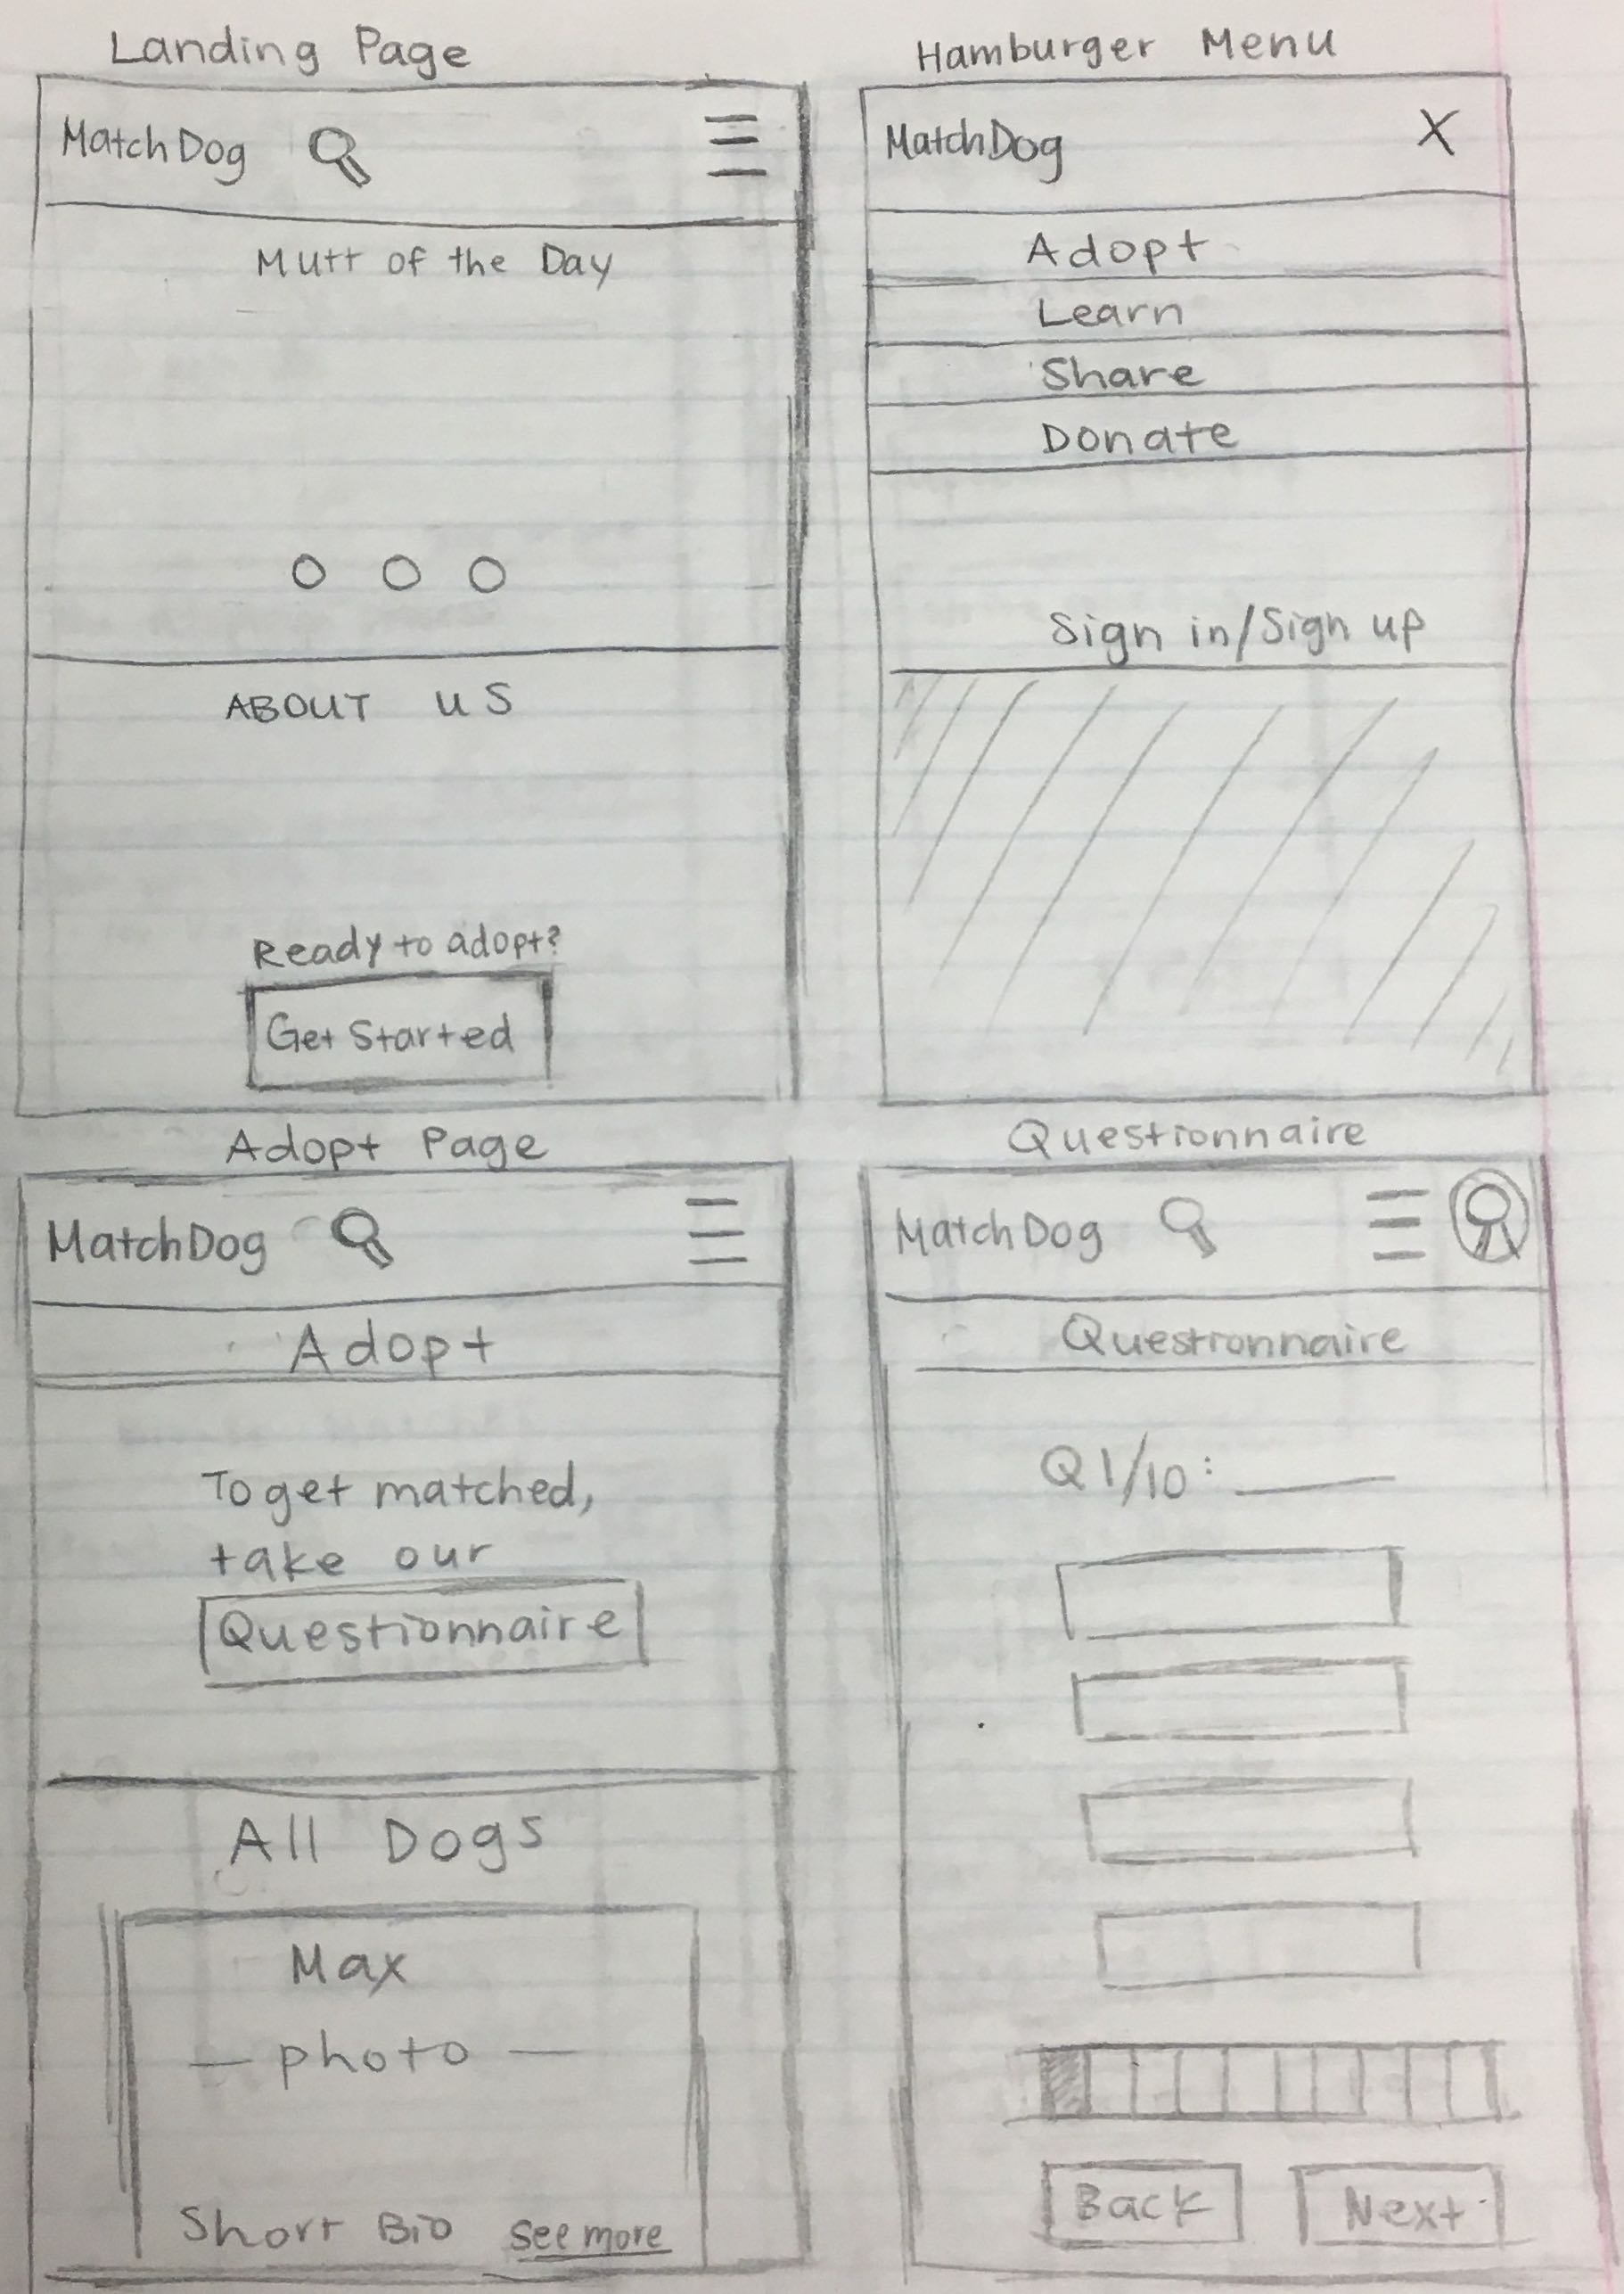 Landing Page
MatchDog
Mutt of the Day
ABOUT US
Ready to adopt?
Get Started
Hamburger Menu
MatchDog X
Adopt
Learn
Share
Donate
Sign in/Sign up
Adopt Page
MatchDog
Adopt
To get matched,
take our
Questionnaire
All Dogs
Max
— photo —
Short Bio see more
Questionnaire
MatchDog
Questionnaire
Q1/10: ____
Back Next